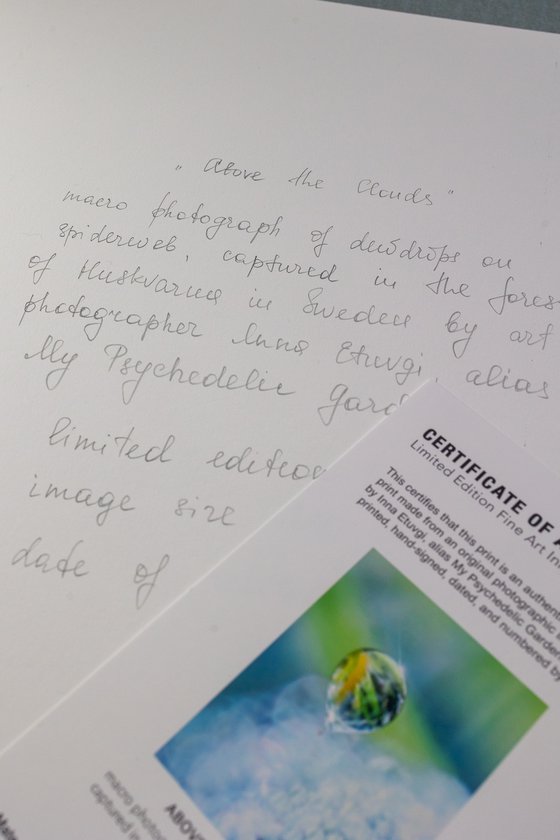 " Above the Clouds "
macro photograph of dewdrops on
spiderweb, captured in the fores
of Huskvarna in Sweden by art
photographer Inna Etuvgi, alias
My Psychedelic Gard
limited edition
image size
date of
CERTIFICATE OF A
Limited Edition Fine Art In
This certifies that this print is an authenti
print made from an original photographic
by Inna Etuvgi, alias My Psychedelic Garden
printed, hand-signed, dated, and numbered by
ABOV
macro photog
captured in